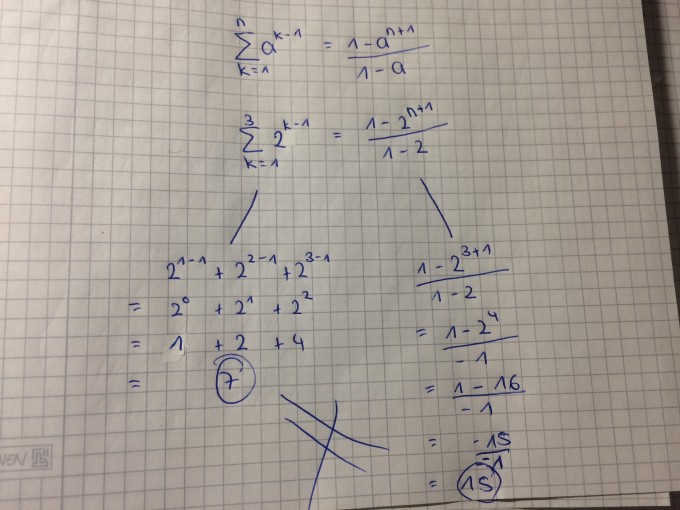 n
∑ a^(k-1) = (1-a^(n+1))/(1-a)
k=1
3
∑ 2^(k-1) = (1-2^(n+1))/(1-2)
k=1
2^(1-1) + 2^(2-1) + 2^(3-1)
= 2^0 + 2^1 + 2^2
= 1 + 2 + 4
= 7
(1-2^(3+1))/(1-2)
= (1-2^4)/(-1)
= (1-16)/(-1)
= (-15)/(-1)
= 15
≠